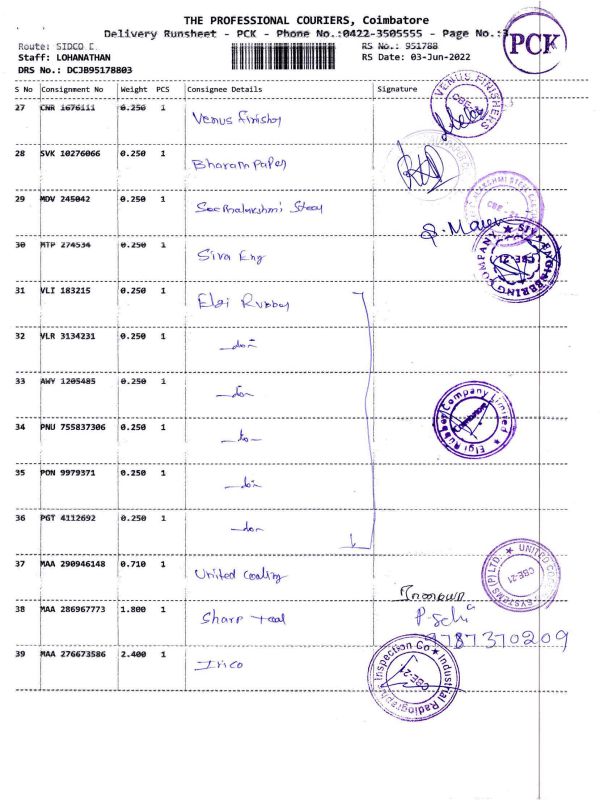 THE PROFESSIONAL COURIERS, Coimbatore
Delivery Runsheet - PCK - Phone No.:0422-3505555 - Page No.:3
PCK
Route: SIDCO E.
RS No.: 951788
Staff: LOHANATHAN
RS Date: 03-Jun-2022
DRS No.: DCJB95178803
S No Consignment No Weight PCS Consignee Details Signature
27 CNR 1676111 0.250 1 Venus Finisher
VENUS FINISHERS CBE-21
28 SVK 10276066 0.250 1 Bharam Paper
29 MDV 245042 0.250 1 Seemalakshmi Steel
30 MTP 274534 0.250 1 Siva Eng
SIVA ENGINEERING COMPANY CBE-21
31 VLI 183215 0.250 1 Elgi Rubber
32 VLR 3134231 0.250 1 -do-
33 AWY 1205485 0.250 1 -do-
34 PNU 755837306 0.250 1 -do-
Elgi Rubber Company Limited Coimbatore
35 PON 9979371 0.250 1 -do-
36 PGT 4112692 0.250 1 -do-
37 MAA 290946148 0.710 1 United Coating
UNITED SYSTEMS (P) LTD. CBE-21
38 MAA 286967773 1.800 1 Sharp Tool
9787370209
39 MAA 276673586 2.400 1 Irico
Industrial Radiography Inspection Co CBE-21